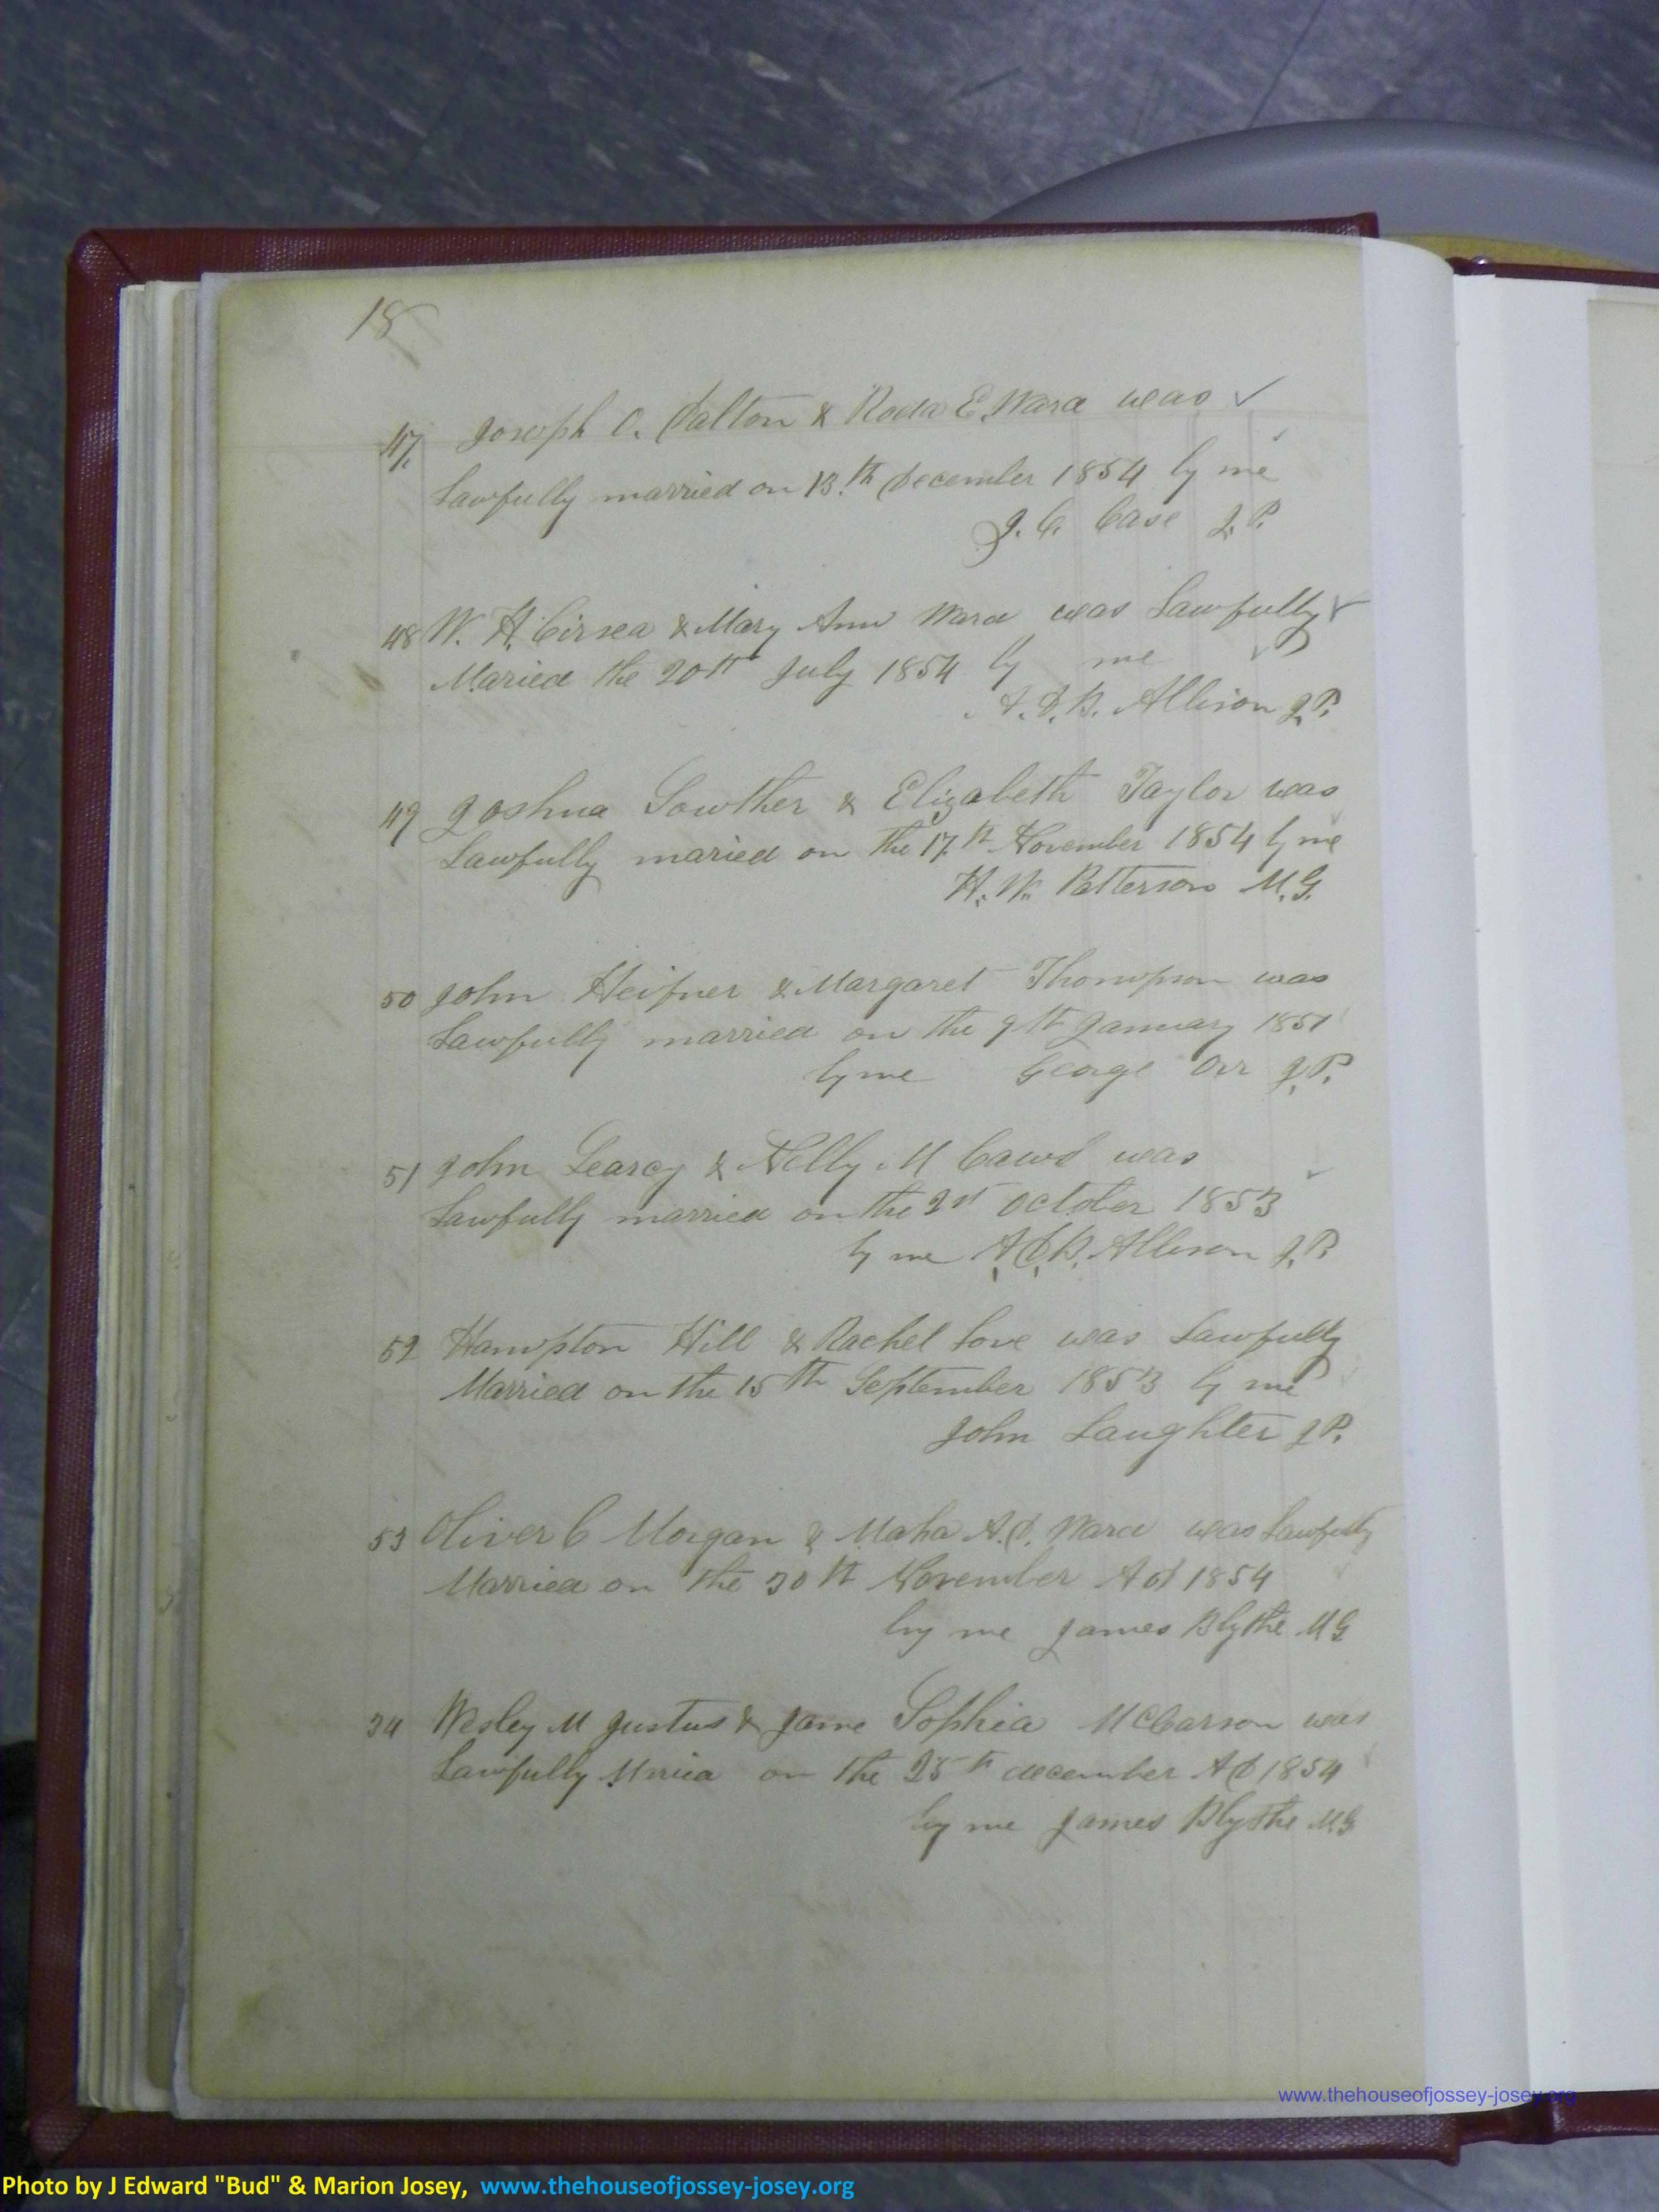 18
47, Joseph C. Dalton & Roda E. Ward was
Lawfully married on 13.th December 1854 by me
J. C. Case J.P.
48 W. H. & Mary Ann Ward was Lawfully
Maried the 20th July 1854 by me
Allison J.P.
49 Joshua Lowther & Elizabeth Taylor was
Lawfully maried on the 17.th November 1854 by me
H. W. Patterson M.G.
50 John Heifner & Margaret Thompson was
Lawfully married on the 9th January 1851
by me George Orr J.P.
51 John Searcy & Nelly M was
Lawfully married on the October 1853
by me Allison J.P.
52 Hampton Hill & Rachel Love was Lawfully
Married on the 15th September 1853 by me
John Laughter J.P.
53 Oliver C Morgan & A.D. Ward was Lawfully
Married on the 30th November AD 1854
by me James Blythe M G
54 Wesley M Justus & Jane Sophia McCarson was
Lawfully on the 25th december AD 1854
by me James Blythe M.G
www.thehouseofjossey-josey.org
Photo by J Edward "Bud" & Marion Josey, www.thehouseofjossey-josey.org